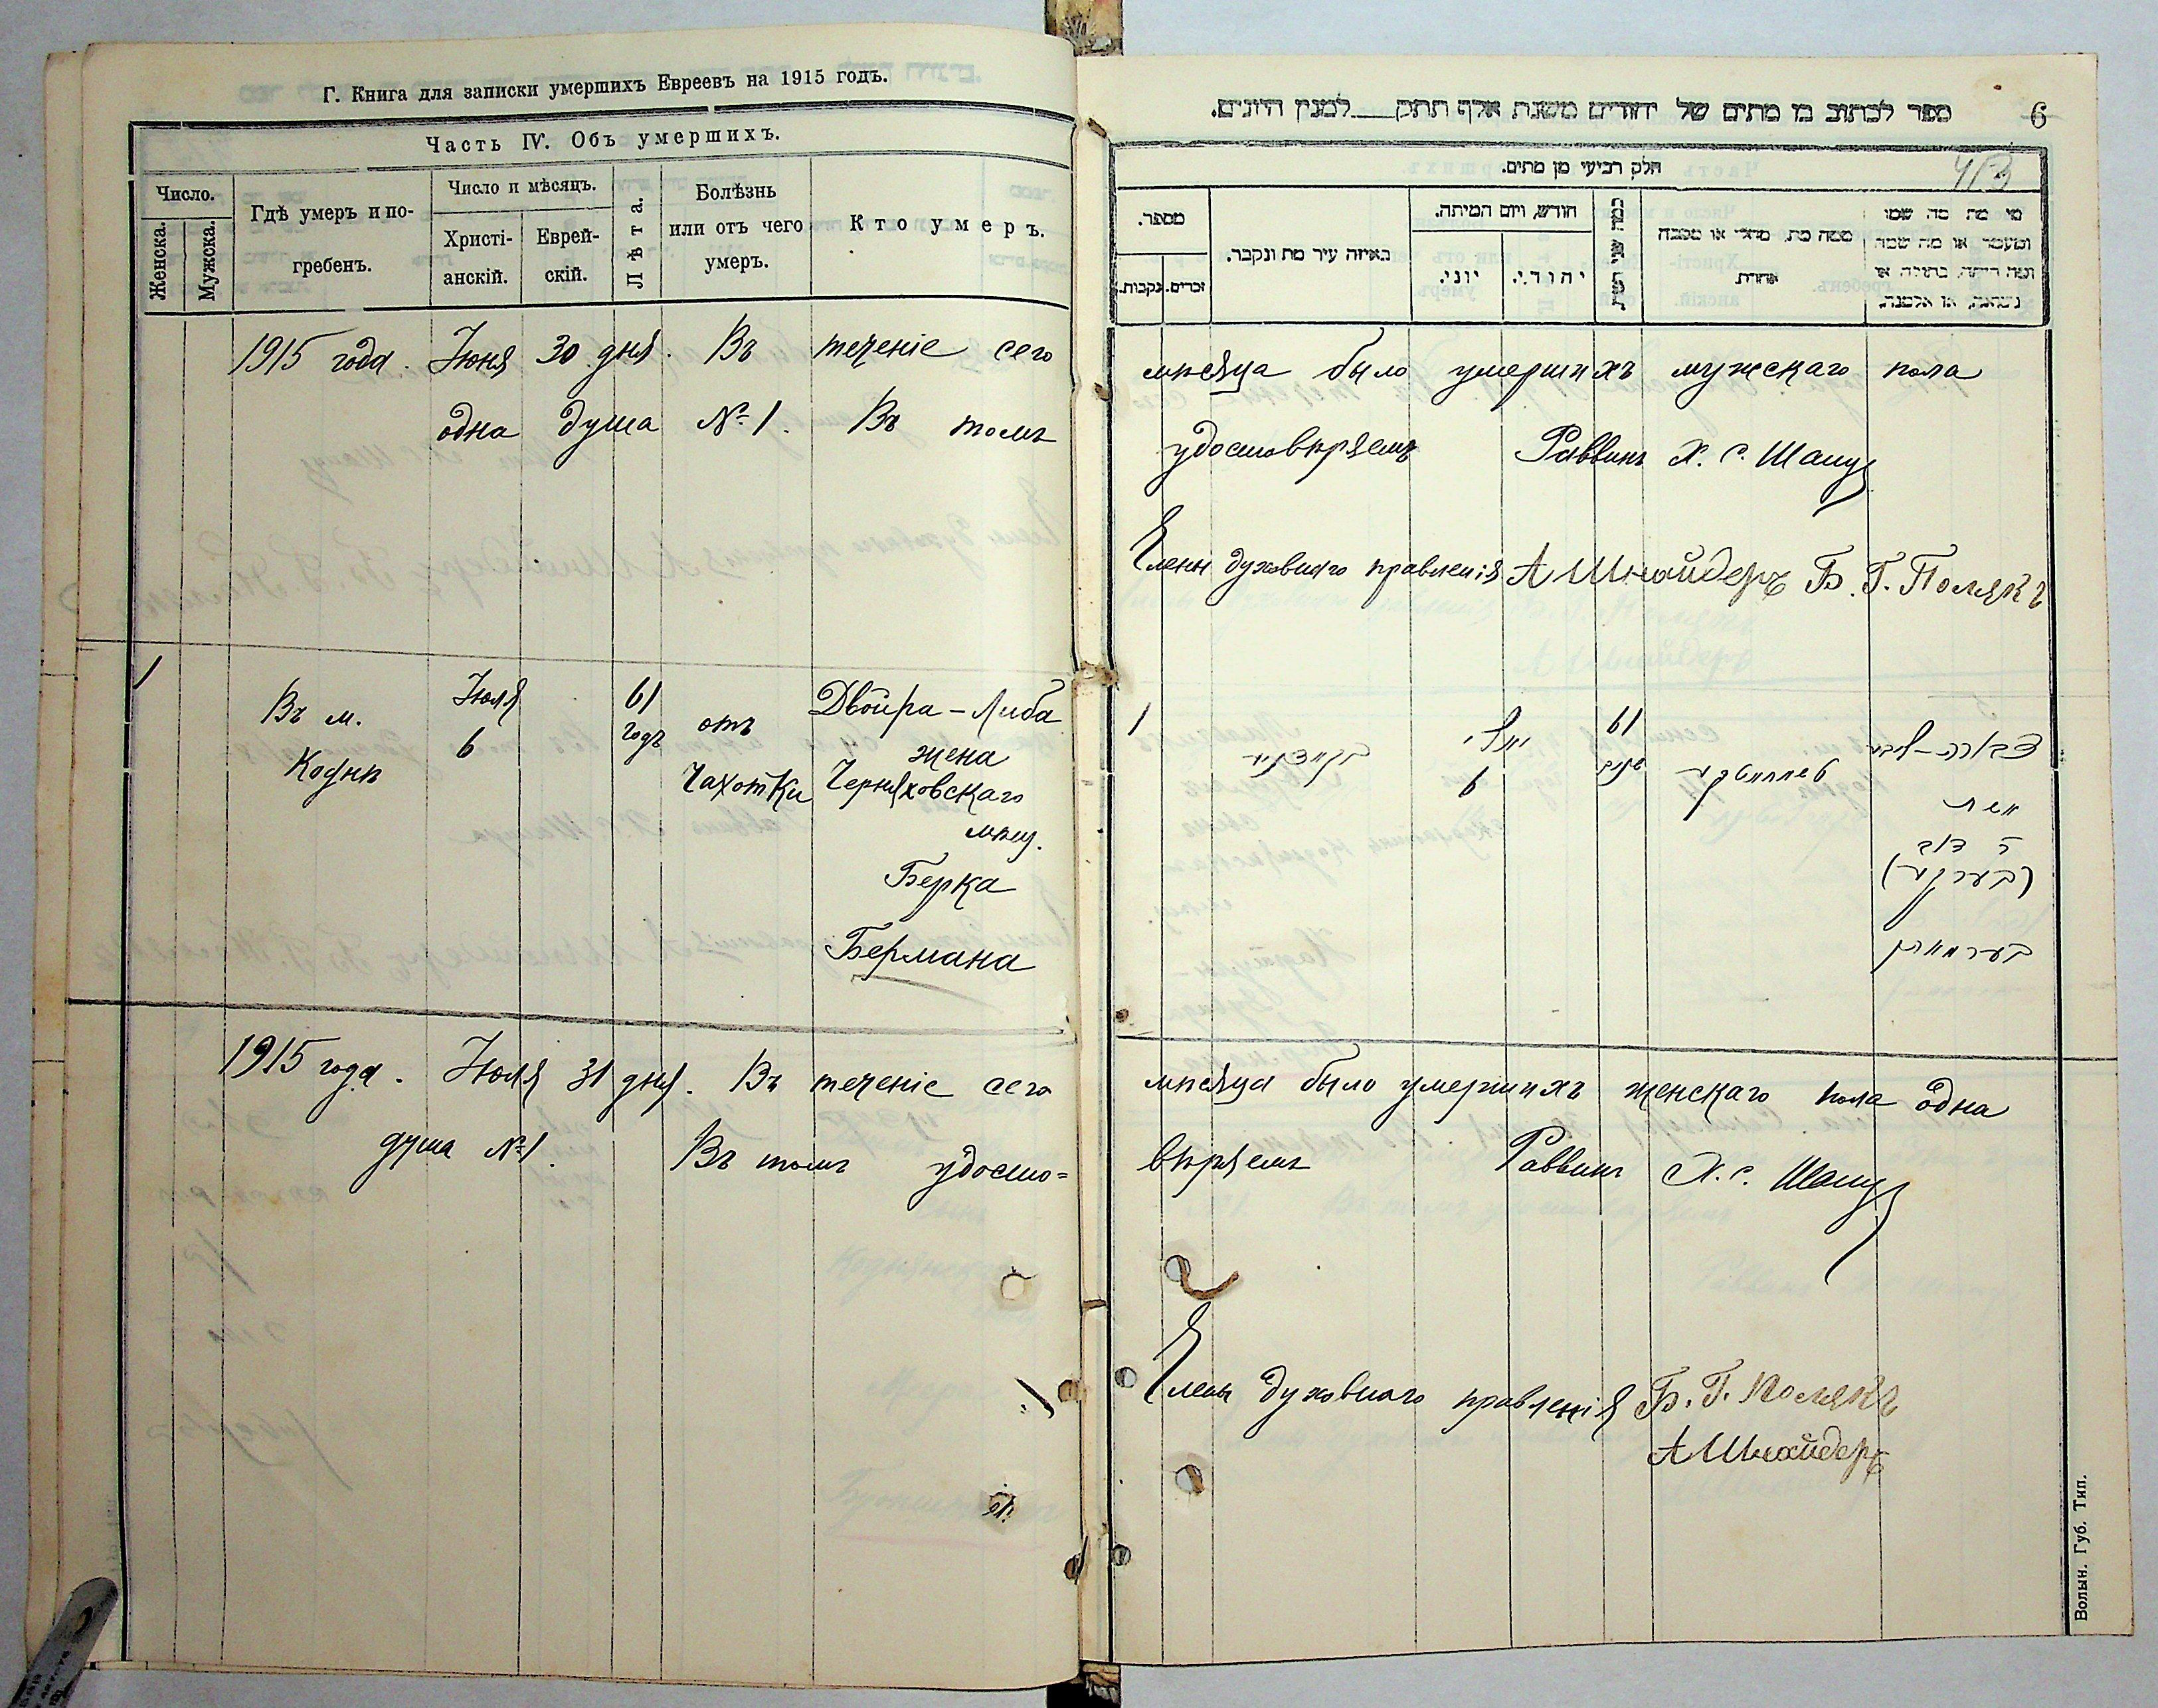 Г. Книга для записки умершихъ Евреевъ на 1915 годъ.
Часть IV. Объ умершихъ.
Число.
Женска.
Мужска.
Гдѣ умеръ и по-
гребенъ.
Число и мѣсяцъ.
Христі-
анскій.
Еврей-
скій.
Лѣта.
Болѣзнь
или отъ чего
умеръ.
Кто умеръ.
1915 года. Іюня 30 дня. Въ теченіе сего
одна душа № 1. Въ томъ
1
Въ м.
Кодни
Іюля
6
61
годъ
отъ
Чахотки
Двойра-Либа
жена
Черняховскаго
мѣщ.
Берка
Бермана
1915 года. Іюля 31 дня. Въ теченіе сего
душа № 1. Въ томъ удосто=
ספר לכתוב בו מתים של יהודים משנת אלף תתק למנין היונים.
6
חלק רביעי מן מתים.
מספר.
נקבות.
זכרים.
באיזה עיר מת ונקבר.
חודש, ויום המיתה.
יוני.
יהודי.
ממה מת, מחלי או מסבה
אחרת
מי מת מה שמו
ומעמדו או מה שמה
ומה היתה, בתולה או
נשואה, או אלמנה.
мѣсяца было умершихъ мужскаго пола
удостовѣряемъ Раввинъ Х. С. Шапу
Члены духовнаго правленія А Шнайдеръ Б. Г. Полякъ
1
יולי
6
61
דבורה-ליבא
אשת
ר' דוב
(בערקא)
בערמאן
мѣсяца было умершихъ женскаго пола одна
вѣряемъ Раввинъ Х. С. Шапу
Члены духовнаго правленія Б. Г. Полякъ
А Шнайдеръ
Волын. Губ. Тип.